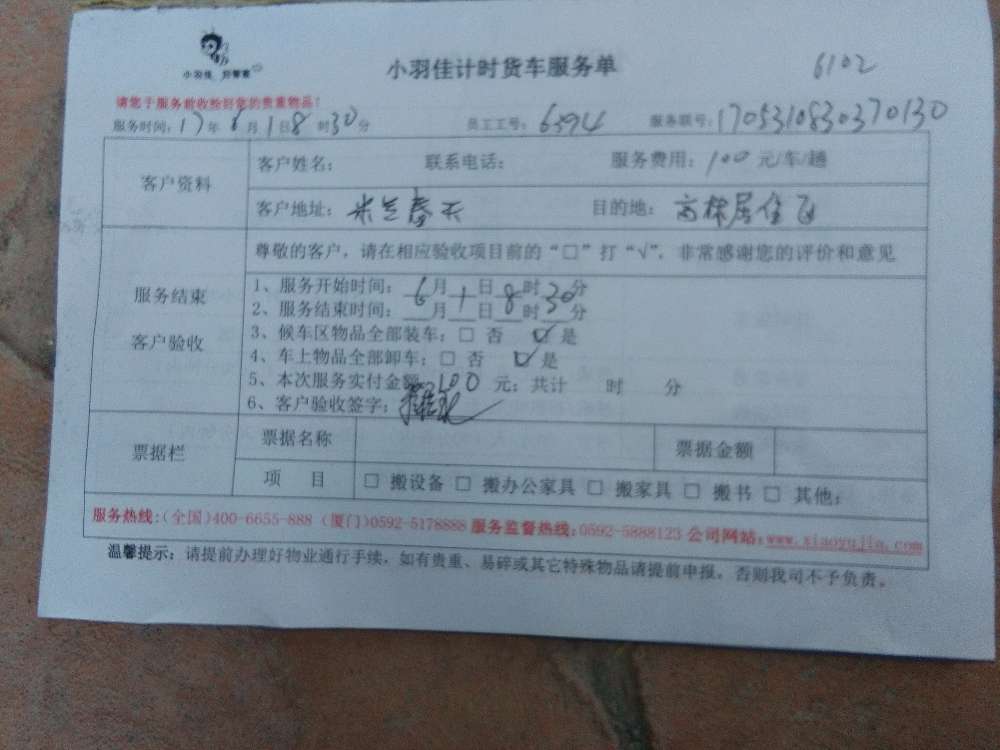 小羽佳 好管家
小羽佳计时货车服务单
6102
请您于服务前收捡好您的贵重物品!
服务时间:17年6月1日8时30分 员工工号:6394 服务联号:1705310830370130
客户资料
客户姓名: 联系电话: 服务费用:100元/车/趟
客户地址:米兰春天 目的地:
尊敬的客户,请在相应验收项目前的“□”打“√”,非常感谢您的评价和意见
服务结束
客户验收
1、服务开始时间:6月1日8时30分
2、服务结束时间:__月__日__时__分
3、候车区物品全部装车:□ 否 ☑ 是
4、车上物品全部卸车:□ 否 ☑ 是
5、本次服务实付金额:100元;共计 时 分
6、客户验收签字:
票据栏
票据名称 票据金额
项 目 □ 搬设备 □ 搬办公家具 □ 搬家具 □ 搬书 □ 其他:
服务热线:(全国)400-6655-888 (厦门)0592-5178888 服务监督热线:0592-5888123 公司网站:www.xiaoyujia.com
温馨提示:请提前办理好物业通行手续,如有贵重、易碎或其它特殊物品请提前申报,否则我司不予负责。